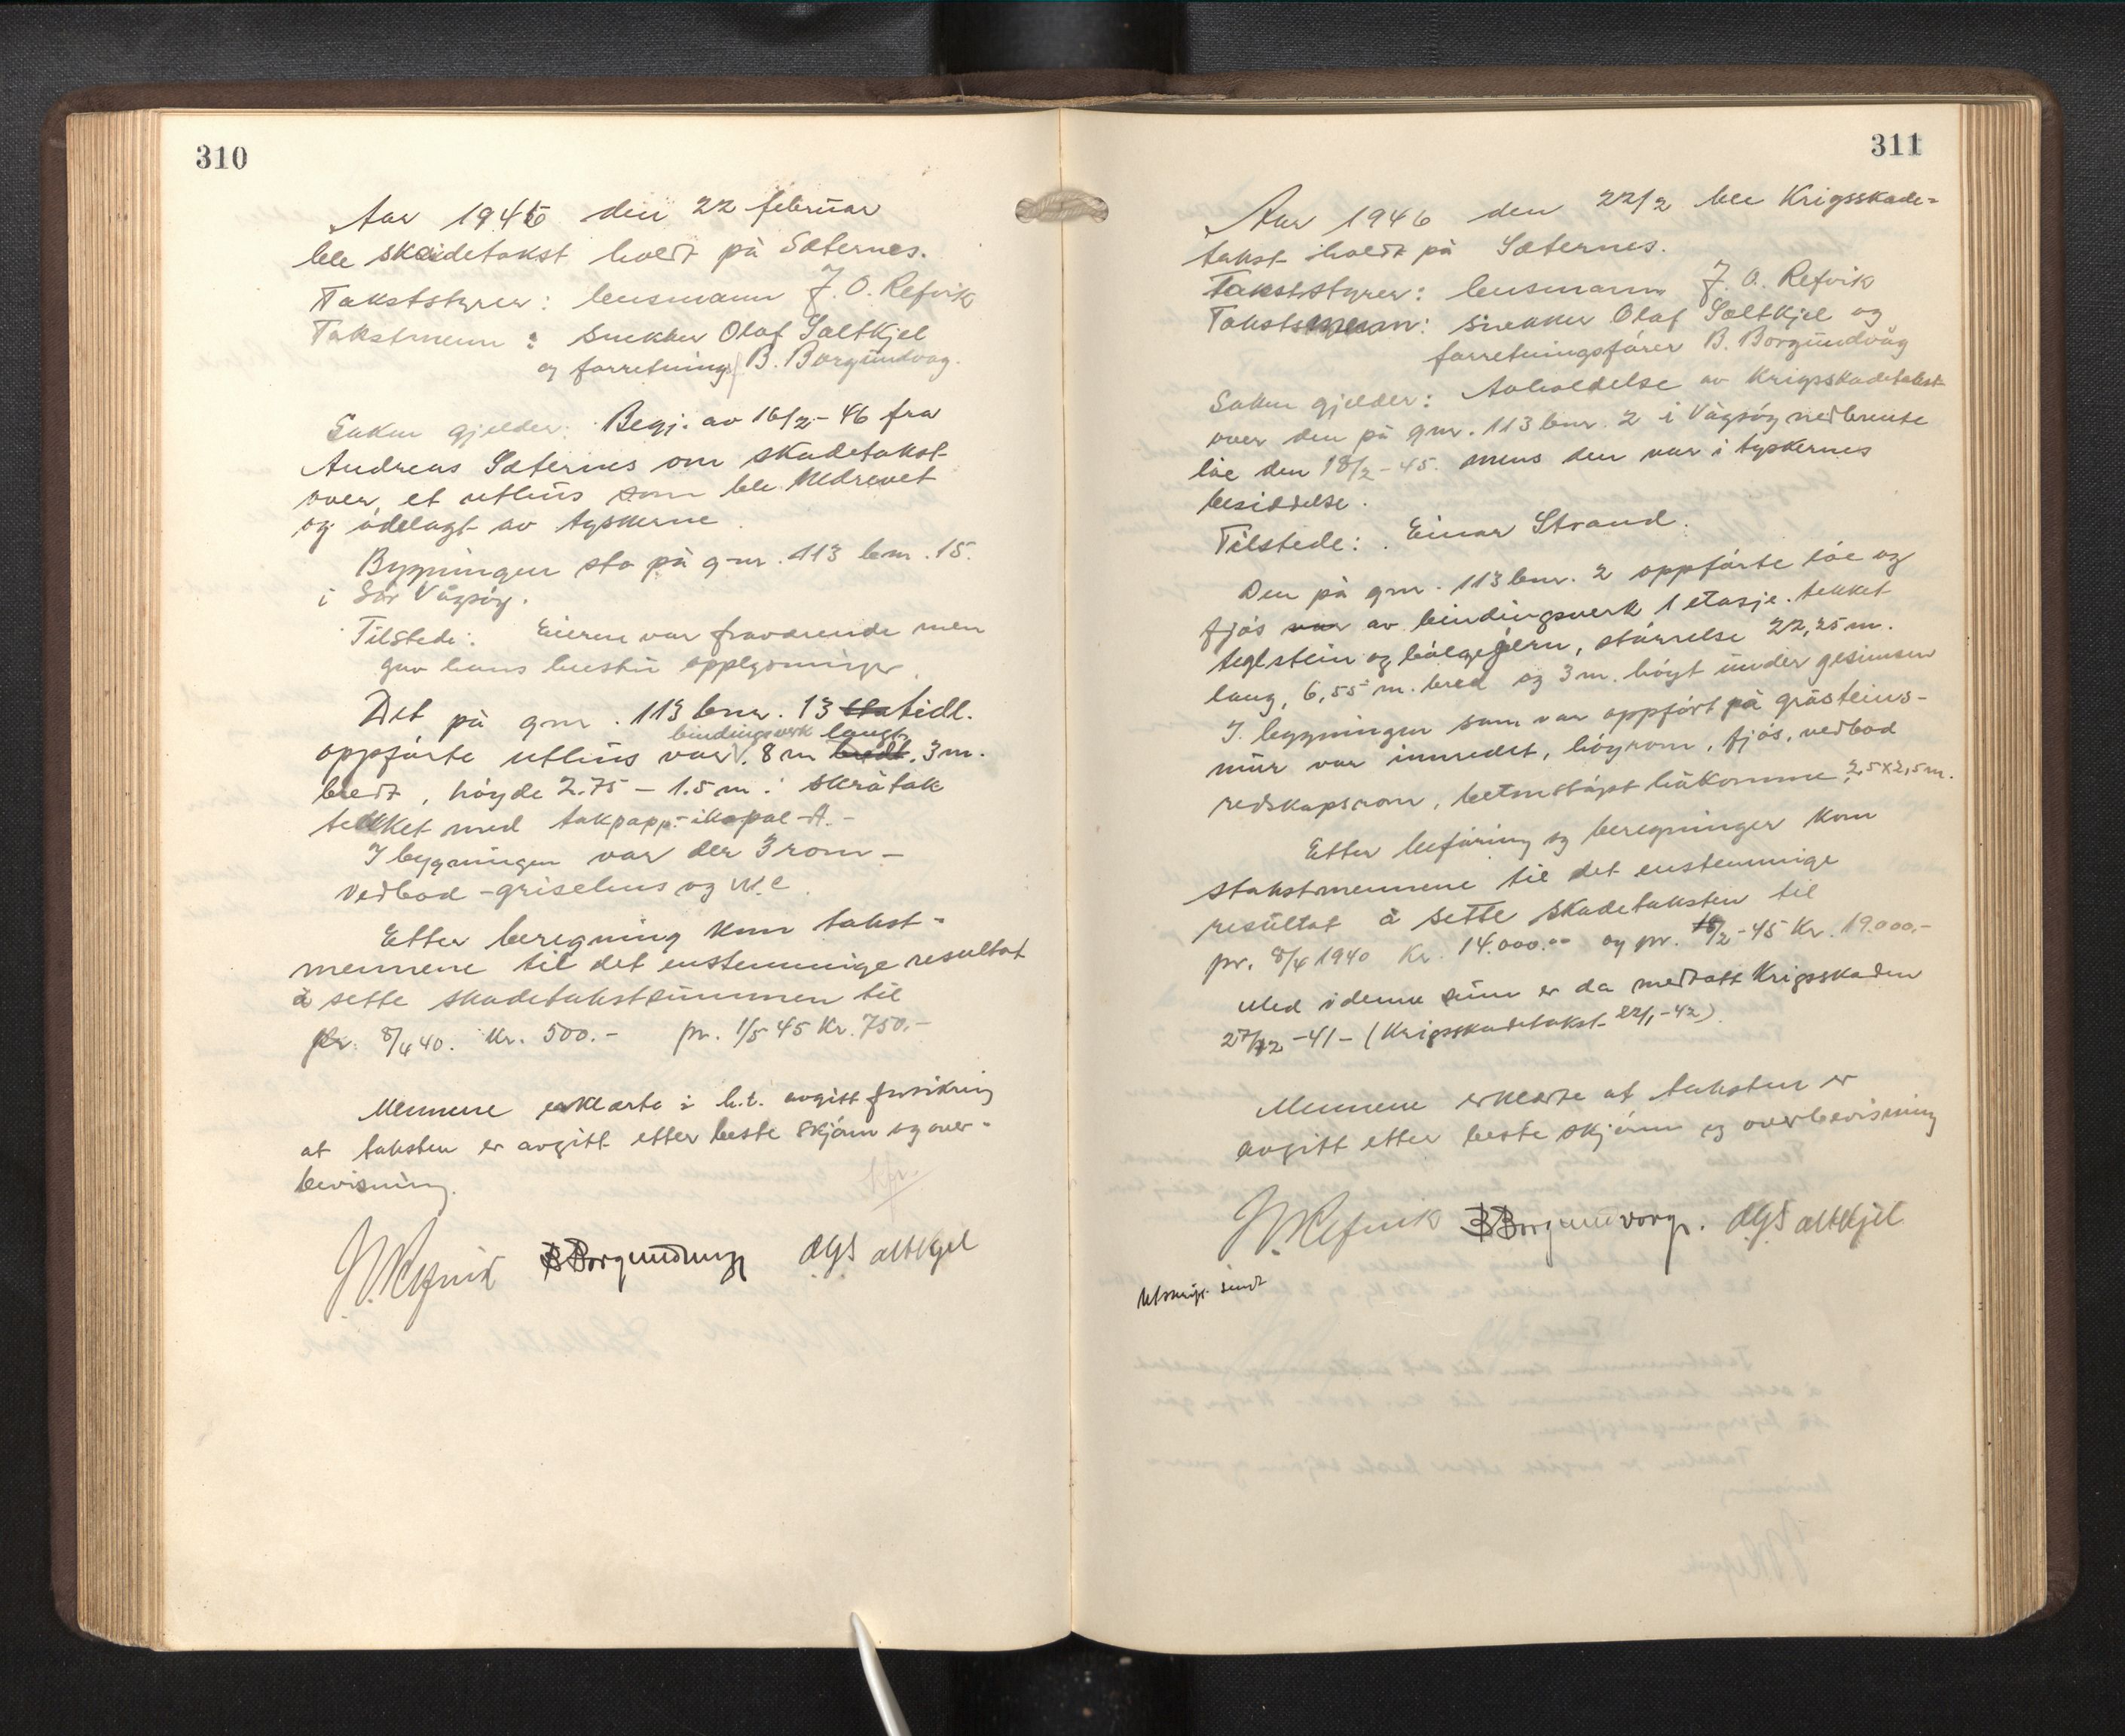 310
Aar 1946 den 22 februar
ble skadetakst holdt på Sæternes.
Takststyrer: lensmann J. O. Refvik
Takstmenn: snekker Olaf Saltkjel
og forretningsf B. Borgundvåg.
Saken gjelder: Begj. av 16/2-46 fra
Andreas Sæternes om skadetakst
over et uthus som ble nedrevet
og ødelagt av tyskerne.
Bygningen sto på gnr. 113 bnr. 15.
i Sør Vågsøy.
Tilstede: Eieren var fraværende men
gav hans hustru opplysninger.
Det på gnr. 113 bnr. 13 sto tidl.
bindingsverk langt
oppførte uthus var 8 m bredt, 3 m.
bredt, høyde 2.75 – 1.5 m. skråtak
tekket med takpapp - ikopal-A. -
I bygningen var der 3 rom –
vedbod – grisehus og W.C.
Etter beregning kom takst-
mennene til det enstemmige resultat
å sette skadetakstsummen til
pr. 8/4 40. Kr. 500.- pr. 1/5 45 Kr. 750.-
Mennene erklærte i h.t. avgitt forsikring
at taksten er avgitt etter beste skjønn og over-
bevisning.
J. Refvik B Borgundvåg O.G. Saltkjel
311
Aar 1946 den 22/2 ble Krigsskade-
takst holdt på Sæternes.
Takststyrer: lensmann J. O. Refvik
Takstmenn: snekker Olaf Saltkjel og
forretningsfører B. Borgundvåg
Saken gjelder: Avholdelse av Krigsskadetakst
over den på gnr. 113 bnr. 2 i Vågsøy nedbrente
løe den 18/2-45. mens den var i tyskernes
besiddelse.
Tilstede: Einar Strand.
Den på gnr. 113 bnr. 2 oppførte løe og
fjøs var av bindingsverk 1 etasje. tekket
teglstein og bølgejern, størrelse 22,25 m.
lang, 6,55 m. bred og 3 m. høyt under gesimsen
I bygningen som var oppført på gråsteins-
mur var innredet, høyrom, fjøs, vedbod
redskapsrom, betongstøpt håkomme, 2,5x2,5 m.
Etter befaring og beregninger kom
takstmennene til det enstemmige
resultat å sette skadetaksten til
pr. 8/4 1940 Kr. 14.000.00 og pr. 18/2-45 Kr. 19.000,-
Med i denne sum er da medtatt Krigsskaden
27/12-41 – (Krigsskadetakst 22/1-42).
Mennene erklærte at taksten er
avgitt etter beste skjønn og overbevisning
J. Refvik B Borgundvåg. O.G. Saltkjel
Utskrift sendt